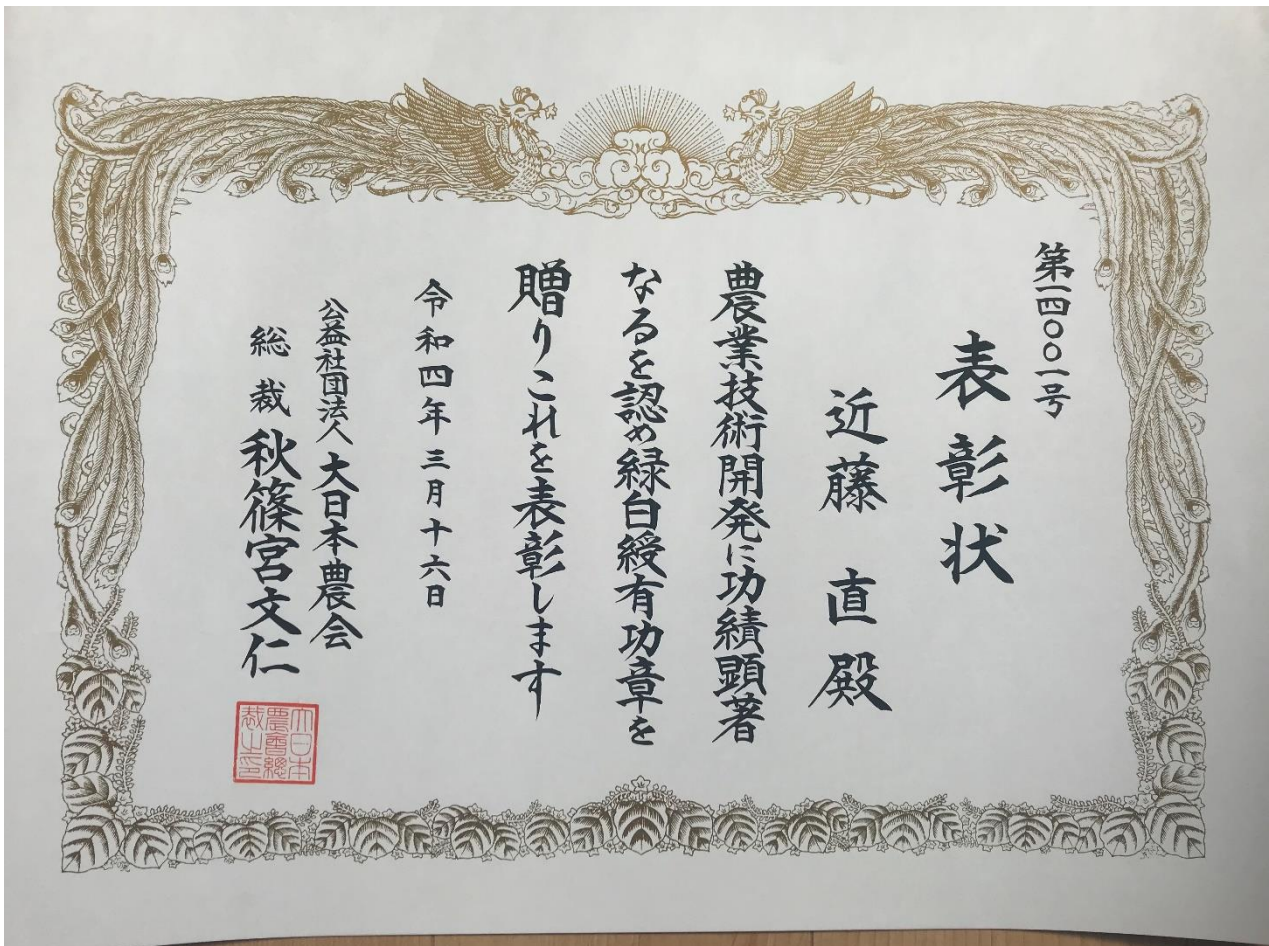 第一四〇〇一号
表彰状
近藤 直殿
農業技術開発に功績顕著
なるを認め緑白綬有功章を
贈りこれを表彰します
令和四年三月十六日
公益社団法人大日本農会
総裁 秋篠宮文仁
大日本
農會總
裁之印